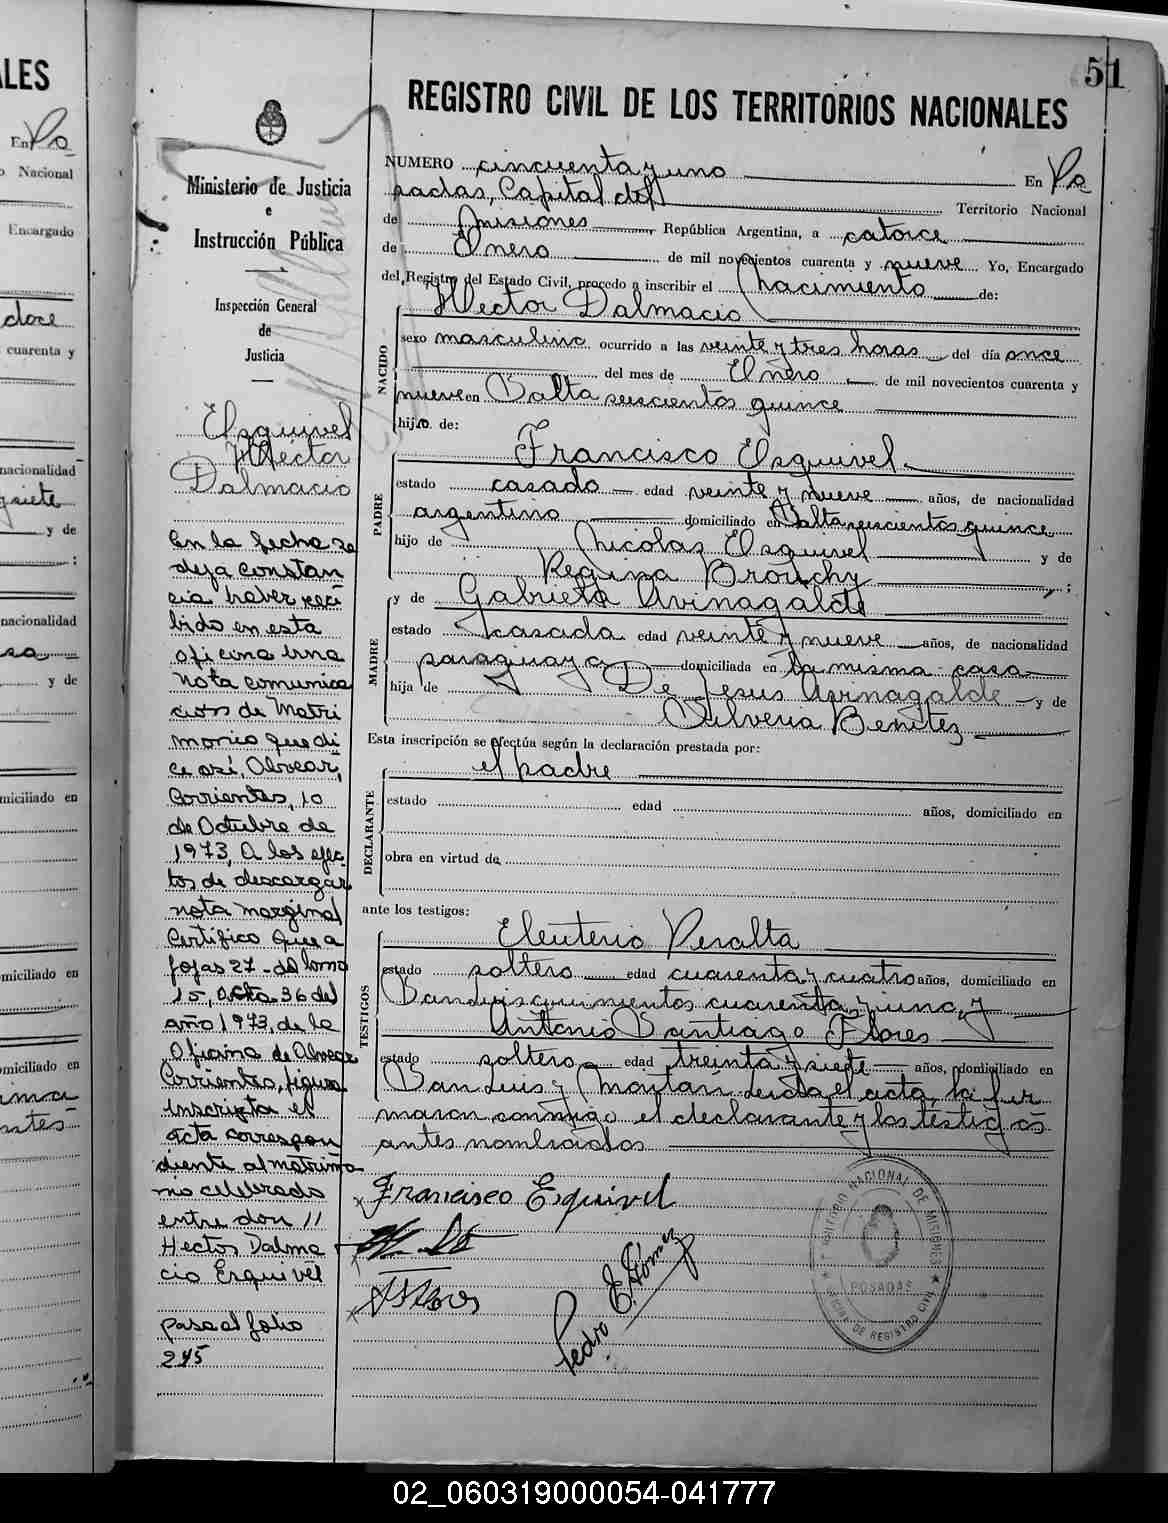 51
REGISTRO CIVIL DE LOS TERRITORIOS NACIONALES
NUMERO cincuenta y uno En Po
sadas, Capital del Territorio Nacional
de Misiones, República Argentina, a catorce
de Enero de mil novecientos cuarenta y nueve Yo, Encargado
del Registro del Estado Civil, procedo a inscribir el Nacimiento de:
Hector Dalmacio
NACIDO
sexo masculino ocurrido a las veinte y tres horas del día once
del mes de Enero de mil novecientos cuarenta y
nueve en Salta seiscientos quince
hijo de:
Francisco Esquivel
PADRE
estado casado edad veinte y nueve años, de nacionalidad
argentino domiciliado en Salta seiscientos quince
hijo de Nicolas Esquivel y de
Regina Brouchy ;
y de Gabriela Avinagalde
MADRE
estado casada edad veinte y nueve años, de nacionalidad
paraguaya domiciliada en la misma casa
hija de De Jesus Avinagalde y de
Silveria Benitez
Esta inscripción se efectúa según la declaración prestada por:
el padre
DECLARANTE
estado edad años, domiciliado en
obra en virtud de
ante los testigos:
Eleuterio Peralta
TESTIGOS
estado soltero edad cuarenta y cuatro años, domiciliado en
San Luis quinientos cuarenta y uno, y
Antonio Santiago Flores
estado soltero edad treinta y siete años, domiciliado en
San Luis y Maytan Leida el acta, la fir
maron conmigo el declarante y los testigos
antes nombrados
Francisco Esquivel
Pedro E. Gómez
TERRITORIO NACIONAL DE MISIONES
POSADAS
OFICINA DE REGISTRO CIVIL
Ministerio de Justicia
e
Instrucción Pública
Inspección General
de
Justicia
Esquivel
Héctor
Dalmacio
En la fecha se
deja constan
cia haber reci
bido en esta
oficina una
nota comunica
ción de Matri
monio que di
ce así, Alvear,
Corrientes, 10
de Octubre de
1973, A los efec
tos de descargar
nota marginal
Certifico que a
fojas 27 - del tomo
15, acta 36 del
año 1973, de la
Oficina de Alvear
Corrientes, figura
inscripta el
acta correspon
diente al matrimo
nio celebrado
entre don //
Hector Dalma
cio Esquivel
pasa al folio
245
LES
En Po
Nacional
Encargado
doce
cuarenta y
nacionalidad
y siete
y de
;
nacionalidad
y de
miciliado en
miciliado en
miciliado en
02_060319000054-041777